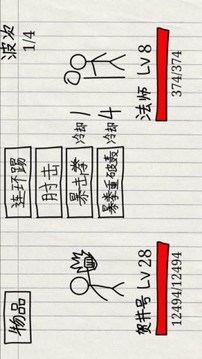 物品
波次
1/4
连环踢
肘击
暴击拳
冷却 1
冷却 4
贺井号 Lv 28
12494/12494
法师 Lv 8
374/374